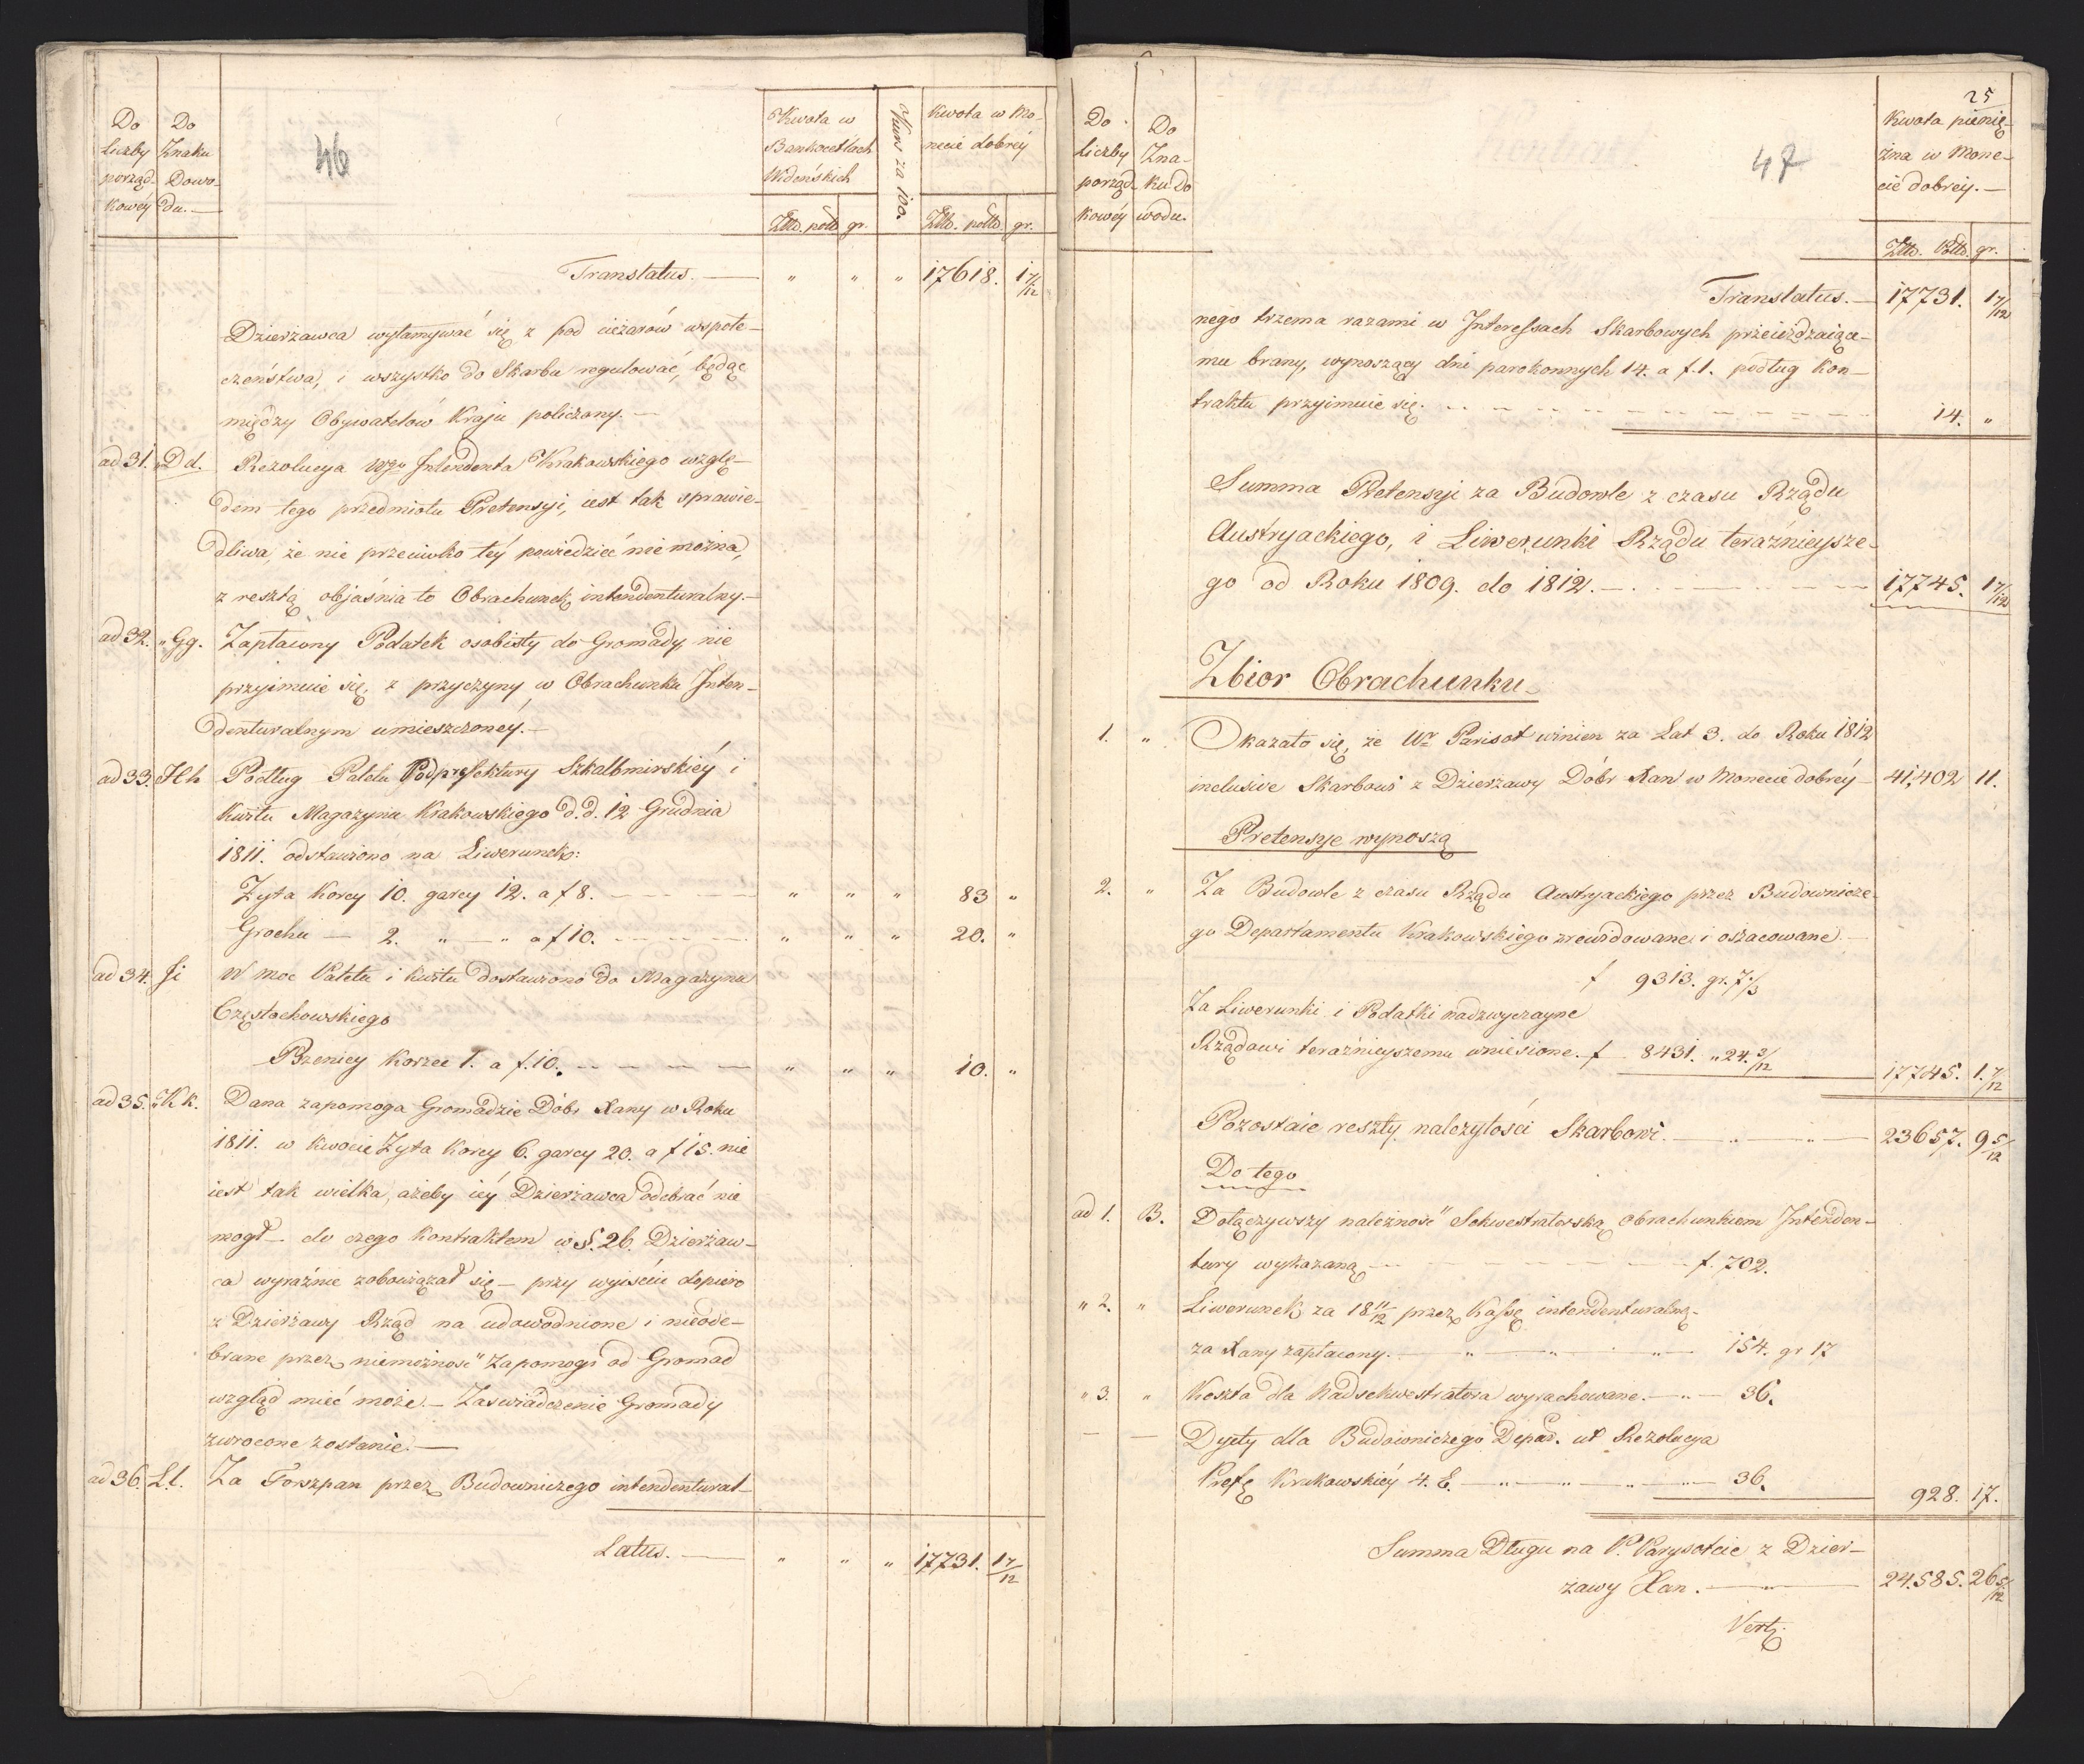 46
Do Liczby porząd- kowéy
Do Znaku Dowo- du.—
Kwota w Bankocetlach Widenskich
Kurs za 100.
Kwota w Mo- necie dobréy
Złło. polło gr.
Złło. polło. gr.
Translatus. — " " " 17618. 1 7/12
Dzierżawca wyłamywać się z pod ciężarów wspołe-
czeństwa, i wszystko do Skarbu regulować, będąc
między Obywatelów Kraju policzony.—
ad 31. "Dd. Rezolucya Wgo Intendenta Krakowskiego wzglę-
dem tego przedmiotu Pretensyi, iest tak sprawie-
dliwa, że nic przeciwko téy powiedzieć nie można,
z resztą objaśnia to Obrachunek intendenturalny.—
ad 32. "Gg. Zapłacony Podatek osobisty do Gromady, nie
przyimuie się, z przyczyny w Obrachunku Inten-
denturalnym umieszczonéy.—
ad 33. Hh Podług Paletu Podprefektury Szkalbmirskiéy i
Kwitu Magazynu Krakowskiego d.d. 12 Grudnia
1811. odstawiono na Liwerunek:
Żyta Korcy 10. garcy 12. a f 8. — " " " 83 "
Grochu — 2. " — " a f 10. — " " " 20. "
ad 34. Ji W moc Paletu i Kwitu dostawiono do Magazynu
Częstochowskiego
Pzenicy Korzec 1. a f. 10. — " " " 10. "
ad 35. "Kk. Dana zapomoga Gromadzie Dóbr Xany w Roku
1811. w kwocie Żyta Korcy 6. garcy 20. a f 15. nie
iest tak wielka, ażeby iéy Dzierżawca odebrać nie
mogł — do czego Kontraktem w §. 26. Dzierżaw-
ca wyraźnie zobowiązał się — przy wyiściu dopiero
z Dzierżawy Rząd na udowodnione i nieode-
brane przez niemożnosć Zapomogi od Gromad
wzgląd mieć może.— Zaswiadczenie Gromady
zwrocone zostanie.—
ad 36. Ll. Za Forszpan przez Budowniczego intendentural-
Latus. — " " " 17731. 1 7/12
25
47
Do Liczby porząd- kowéy
Do Zna- ku do wodu.
Kwota pienię- żna w Mone- cie dobréy.—
Złło. Polło. gr.
Translatus.— 17731. 1 7/12
nego trzema razami w Interessach Skarbowych przeieżdzaiące-
mu brany, wynoszący dni parokonnych 14. a f. 1. podług Kon-
traktu przyimuie się. — 14. "
Summa Pretensyi za Budowle z czasu Rządu
Austryackiego, i Liwerunki Rządu teraźnieysze-
go od Roku 1809. do 1812.— 17745. 1 7/12
Zbior Obrachunku.
1. " Okazało się, że Wr. Parisot winien za Lat 3. do Roku 1812
inclusive Skarbowi z Dzierżawy Dóbr Xan w Monecie dobréy — 41,402 11.
Pretensye wynoszą
2. " Za Budowle z czasu Rządu Austryackiego przez Budownicze-
go Departamentu Krakowskiego zrewidowane i oszacowane.—
f 9313. gr. 7 1/3
Za Liwerunki i Podatki nadzwyczayne
Rządowi teraźnieyszemu wniesione. f 8431. " 24. 3/12 17745. 1. 7/12
Pozostaie reszty należytości Skarbowi. — 23657. 9 5/12
Do tego
ad 1. B. Dołączywszy należnosć Sekwestratorską obrachunkiem Intenden-
tury wykazaną — f. 702.
" 2. " Liwerunek za 18 11/12 przez Kassę intendenturalną
za Xany zapłacony. — 154. gr 17
" 3. " Koszta dla Nadsekwestratora wyrachowane. — 36.
— — Dyety dla Budowniczego Depar. ut Rezolucya
Pref. Krakowskiéy 4. E. — 36. 928. 17.
Summa Długu na P. Parysotcie z Dzier-
żawy Xan. — 24.585. 26 5/12
Vert.